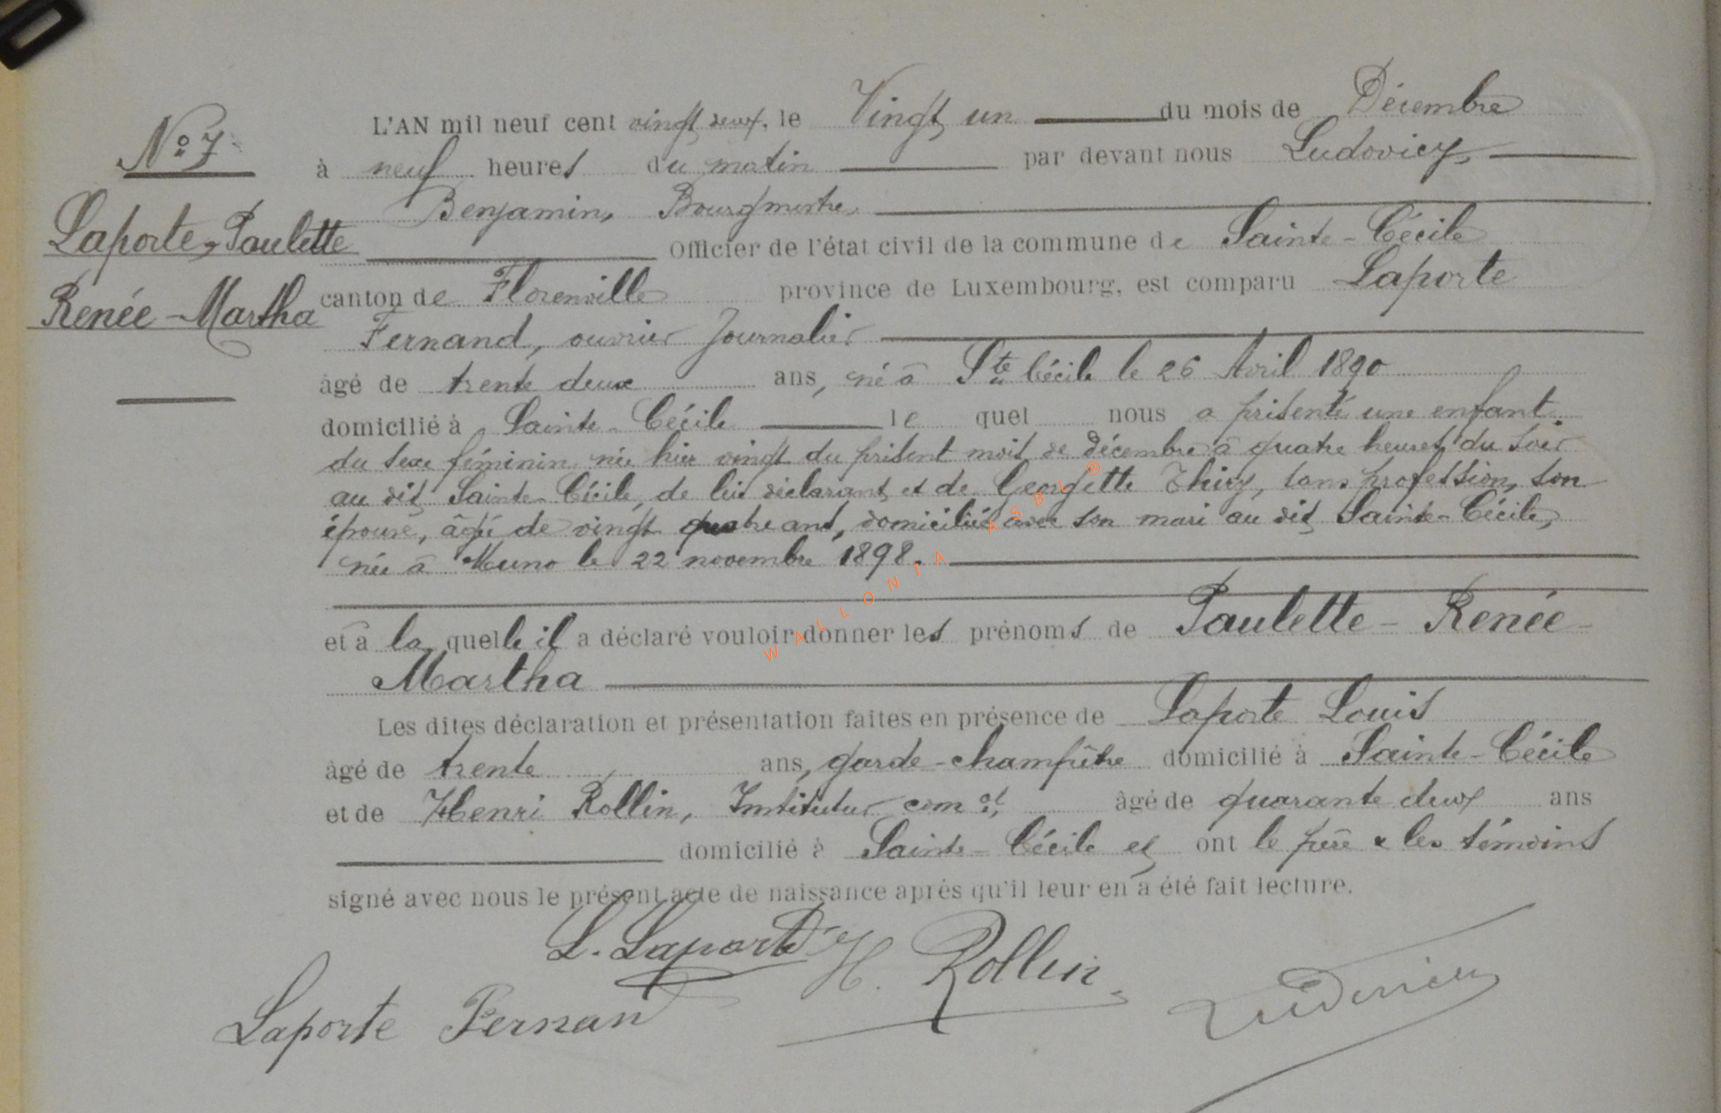 N° 7
Laporte, Paulette
Renée-Martha
L'AN mil neuf cent vingt deux, le Vingt un du mois de Décembre
à neuf heures du matin par devant nous Ludovicy,
Benjamin, Bourgmestre,
Officier de l'état civil de la commune de Sainte-Cécile
canton de Florenville province de Luxembourg, est comparu Laporte
Fernand, ouvrier Journalier
âgé de trente deux ans, né à Ste Cécile le 26 Avril 1890
domicilié à Sainte-Cécile le quel nous a présenté une enfant
du sexe féminin née hier vingt du présent mois de décembre à quatre heures du soir
au dit Sainte-Cécile, de lui déclarant et de Georgette Thiry, sans profession, son
épouse, âgée de vingt quatre ans, domiciliée avec son mari au dit Sainte-Cécile,
née à Muno le 22 novembre 1898.
et à la quelle il a déclaré vouloir donner les prénoms de Paulette-Renée-
Martha
Les dites déclaration et présentation faites en présence de Laporte Louis
âgé de trente ans, garde-champêtre domicilié à Sainte-Cécile
et de Henri Rollin, Instituteur comal, âgé de quarante deux ans
domicilié à Sainte-Cécile et ont le père & les témoins
signé avec nous le présent acte de naissance après qu'il leur en a été fait lecture.
L. Laporte H. Rollin
Laporte Fernan Ludovicy
WALLONIA ASBL ©